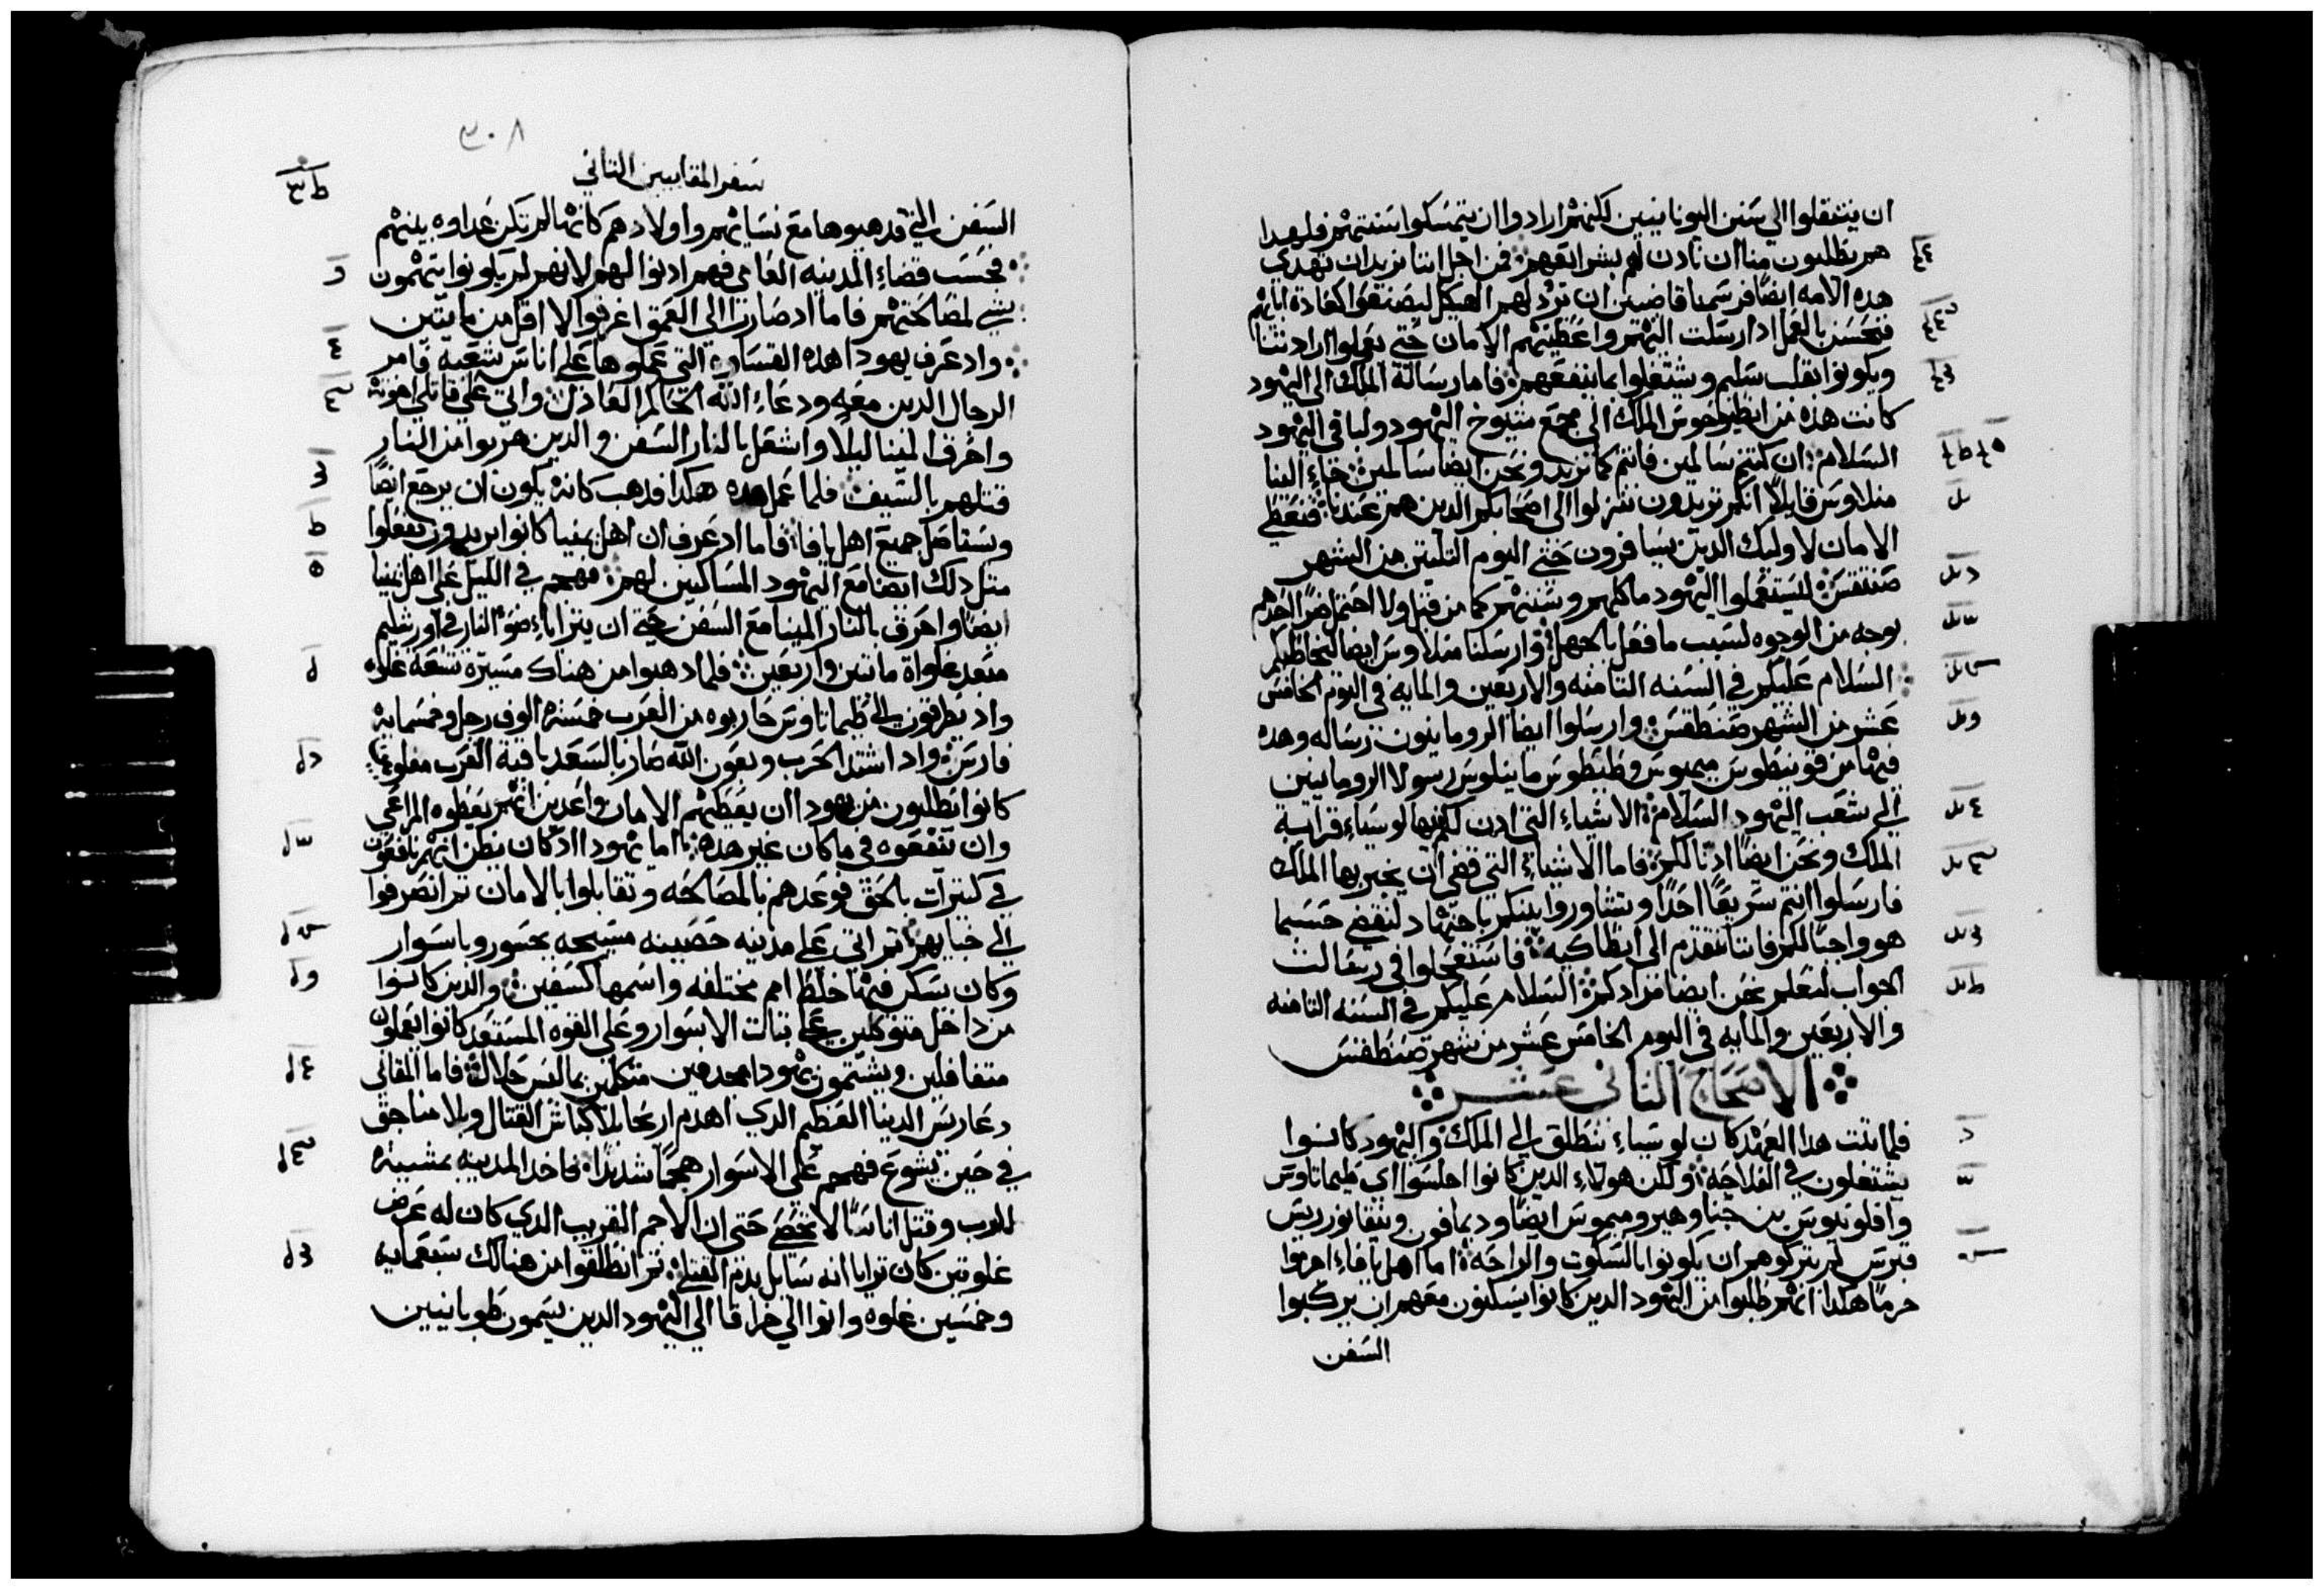 ان ينتقلوا الي سنن اليونانيين لكنهم ارادوا ان يتمسكوا بسنتهم فلهدا
هم يطلبون منا ان نادن لهم بشرايعهم فمن اجل اننا نريد ان تهدي
هده الامه ايضا فرسمنا قاضيين ان نرد لهم الهيكل ليصنعوا كعادة ابايهم
فتحسن بالعمل ادا ارسلت اليهم واعطيتهم الامان حتي يعلموا ارادتنا
ويكونوا بقلب سليم ويشتغلوا بما ينفعهم فاما رسالة الملك الي اليهود
كانت هده من انطيوخوس الملك الي مجمع شيوخ اليهود ولباقي اليهود
السلام ان كنتم سالمين فانتم كما نريد ونحن ايضا سالمين جاء الينا
منلاوس قايلا انكم تريدون تنزلوا الي اصحابكم الدين هم عندنا فنعطي
الامان لاوليك الدين يسافرون حتي اليوم التلتين من الشهر
صنتقس ليستعملوا اليهود ماكلهم وسننهم كما من قبل ولا احتمل ضرا احدهم
بوجه من الوجوه لسبب ما فعل بالجهل وارسلنا منلاوس ايضا ليخاطبكم
السلام عليكم في السنه التامنه والاربعين والمايه في اليوم الخامس
عشر من الشهر صنطقس وارسلوا ايضا الرومانيون رساله وهده
فيها من قوينطوس ميميوس وطيطوس مانيلوس رسولا الرومانيين
الي شعب اليهود السلام الاشياء التي ادن لكم بها لوسياء قرابة
الملك ونحن ايضا ادنا لكم فاما الاشياء التي قضي ان يخبر بها الملك
فارسلوا انتم سريعا احدا وتشاوروا بينكم باجتهاد لنقضي حسبما
هو واجبا لكم فاننا نتقدم الي انطاكيه فاستعجلوا في رسالت
الجواب لنعلم نحن ايضا مرادكم السلام عليكم في السنه التامنه
والاربعين والمايه في اليوم الخامس عشر من شهر صنطقس
الاصحاح التاني عشر
فلما تمت هدا العهد كان لوسياء ينطلق الي الملك واليهود كانوا
يشتغلون في الفلاحه ولكن هولاء الدين كانوا اجلسوا اي طيماتاوس
وافلونيوس بن جنا وهيروميموس ايضا وديمافون ونيقانور ريس
قبرس لم يتركوهم ان يكونوا بالسكوت والراحه اما اهل يافاء اجرموا
جرما هكدا انهم طلبوا من اليهود الدين كانوا يسكنون معهم ان يركبوا
السفن
٣٠٨
سفر المقابيين التاني
السفن التي قد هيوها مع نسايهم واولادهم كانها لم تكن عداوه بينهم
فحسب قضاء المدينه العامي فهم ادنوا لهولا لانهم لم يكونوا يتهمون
بشي لمصالحتهم فاما اد صاروا الي العمق اغرقوا لا اقل من مايتين
واد عرف يهودا هده القساوه التي عملوها علي اناس شعبه فامر
الرجال الدين معه ودعاء الله الحاكم العادل واتي علي قاتلي اخوته
واحرق المينا ليلا واشعل بالنار السفن والدين هربوا من النار
قتلهم بالسيف فلما عمل هده هكدا فدهب كانه يكون ان يرجع ايضا
ويستاصل جميع اهل يافا فاما اد عرف ان اهل يمنيا كانوا يريدون يفعلوا
متل دلك ايضا مع اليهود المساكنين لهم فهجم في الليل علي اهل يمنيا
ايضا واحرق بالنار المينا مع السفن حتي ان يتراياء ضوء النار في اورشليم
مبعد غلواة مايتين واربعين فلما دهبوا من هناك مسيرة تسعة غلوه
واد يطرقون الي طيماتاوس حاربوه من العرب خمسة الوف رجل وخمسمايه
فارس واد اشتد الحرب وبعون الله صار بالسعد باقية العرب مغلوبين
كانوا يطلبون من يهودا ان يعطيهم الامان واعدين انهم يعطوه المراعي
وان ينفعوه في ما كان غير هده اما يهودا اد كان يظن انهم نافعون
في كتيرات بالحق فوعدهم بالمصالحه وتقابلوا بالامان تم انصرفوا
الي خبايهم تم اتي علي مدينه حصينه مسيجه بجسور وباسوار
وكان يسكن فيها خلط امم مختلفه واسمها كسفين والدين كانوا
من داخل متوكلين علي تبات الاسوار وعلي القوه المستعد كانوا يعملون
متغافلين ويشتمون يهودا مجدفين متكلمين بما ليس حلال فاما المقابي
دعا ريس الدنيا العظيم الدي اهدم اريحا بلا كباش القتال وبلا مناجق
في حين يشوع فهجم علي الاسوار هجما شديدا فاخد المدينه بمشيه
الرب وقتل اناسا لا تحصي حتي ان الاجم القريب الدي كان له عرض
غلوتين كان ترايا انه سايل بدم القتلي تم انطلقوا من هنالك سبعمايه
وخمسين غلوه واتوا الي خراقا الي اليهود الدين يسمون طوبانيين